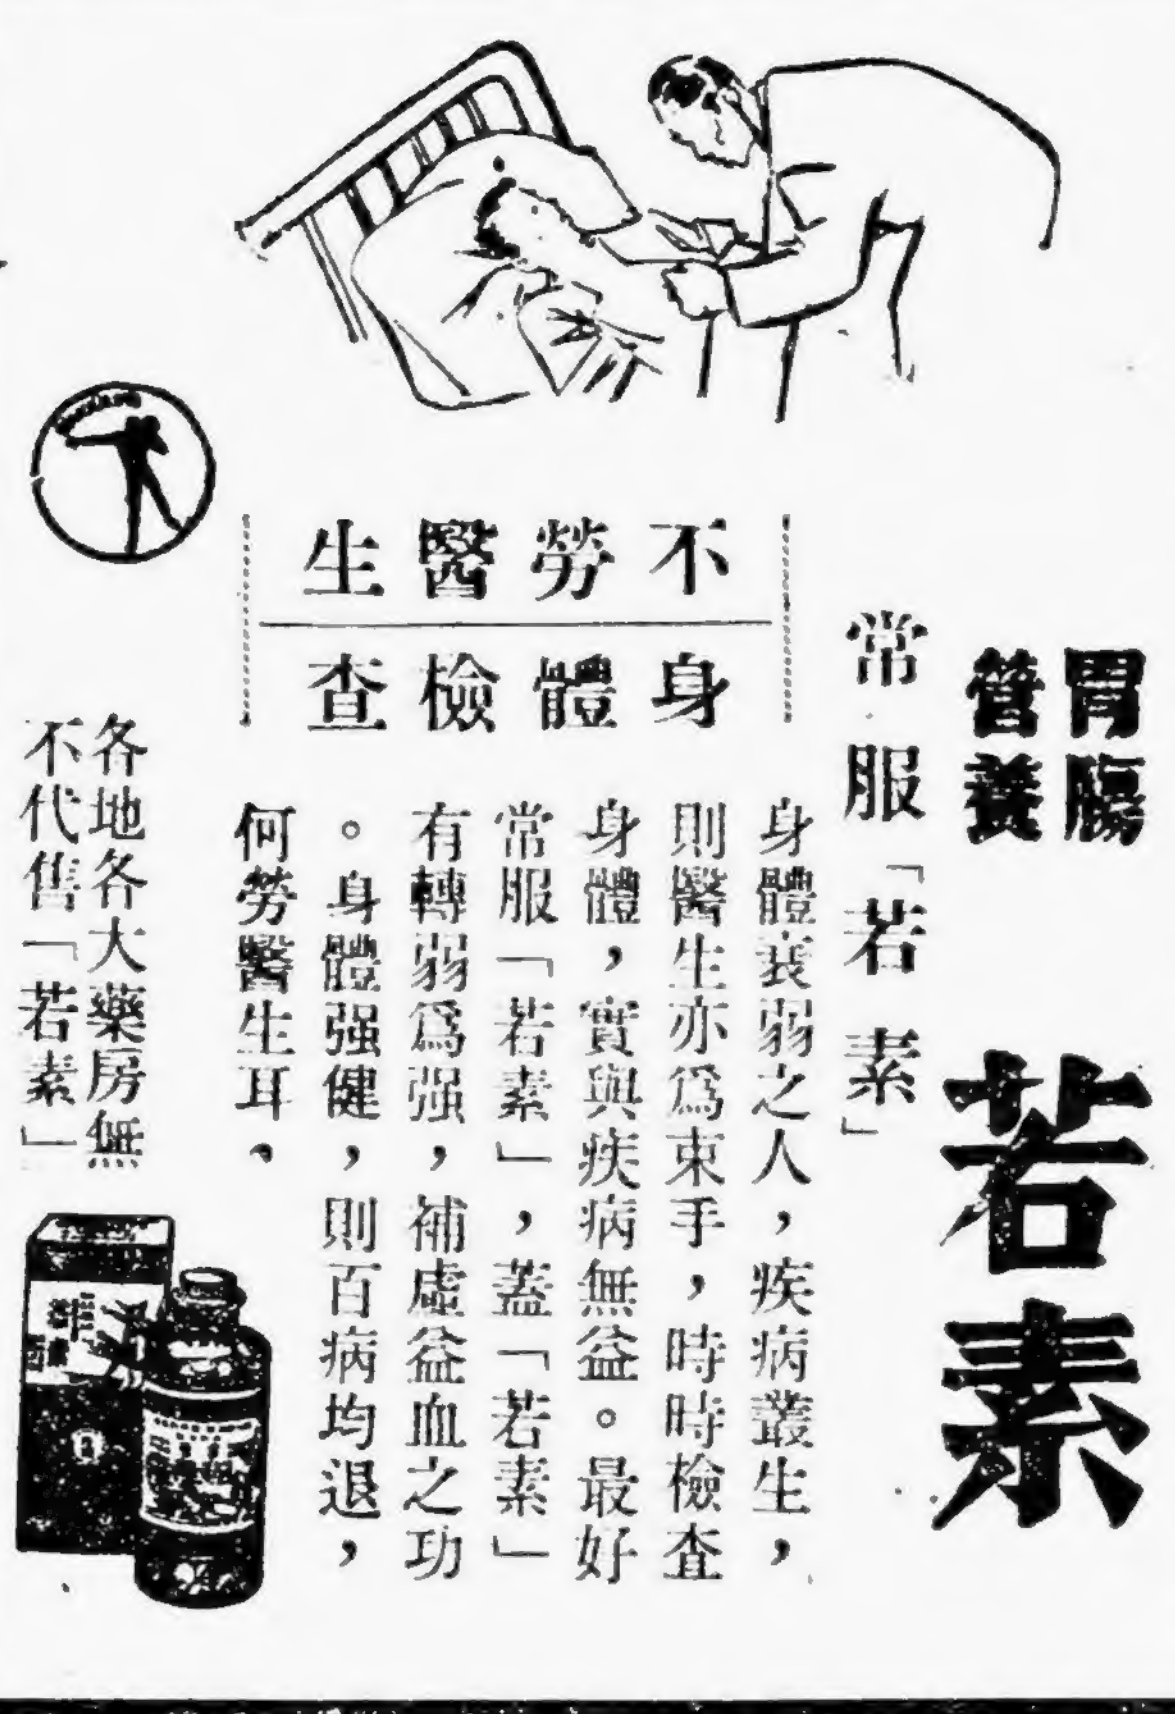 胃腸
營養
若素
常服「若素」
不勞醫生
身體檢查
身體衰弱之人，疾病叢生，
則醫生亦爲束手，時時檢查
身體，實與疾病無益。最好
常服「若素」，蓋「若素」
有轉弱爲强，補虛益血之功
。身體强健，則百病均退，
何勞醫生耳。
各地各大藥房無
不代售「若素」